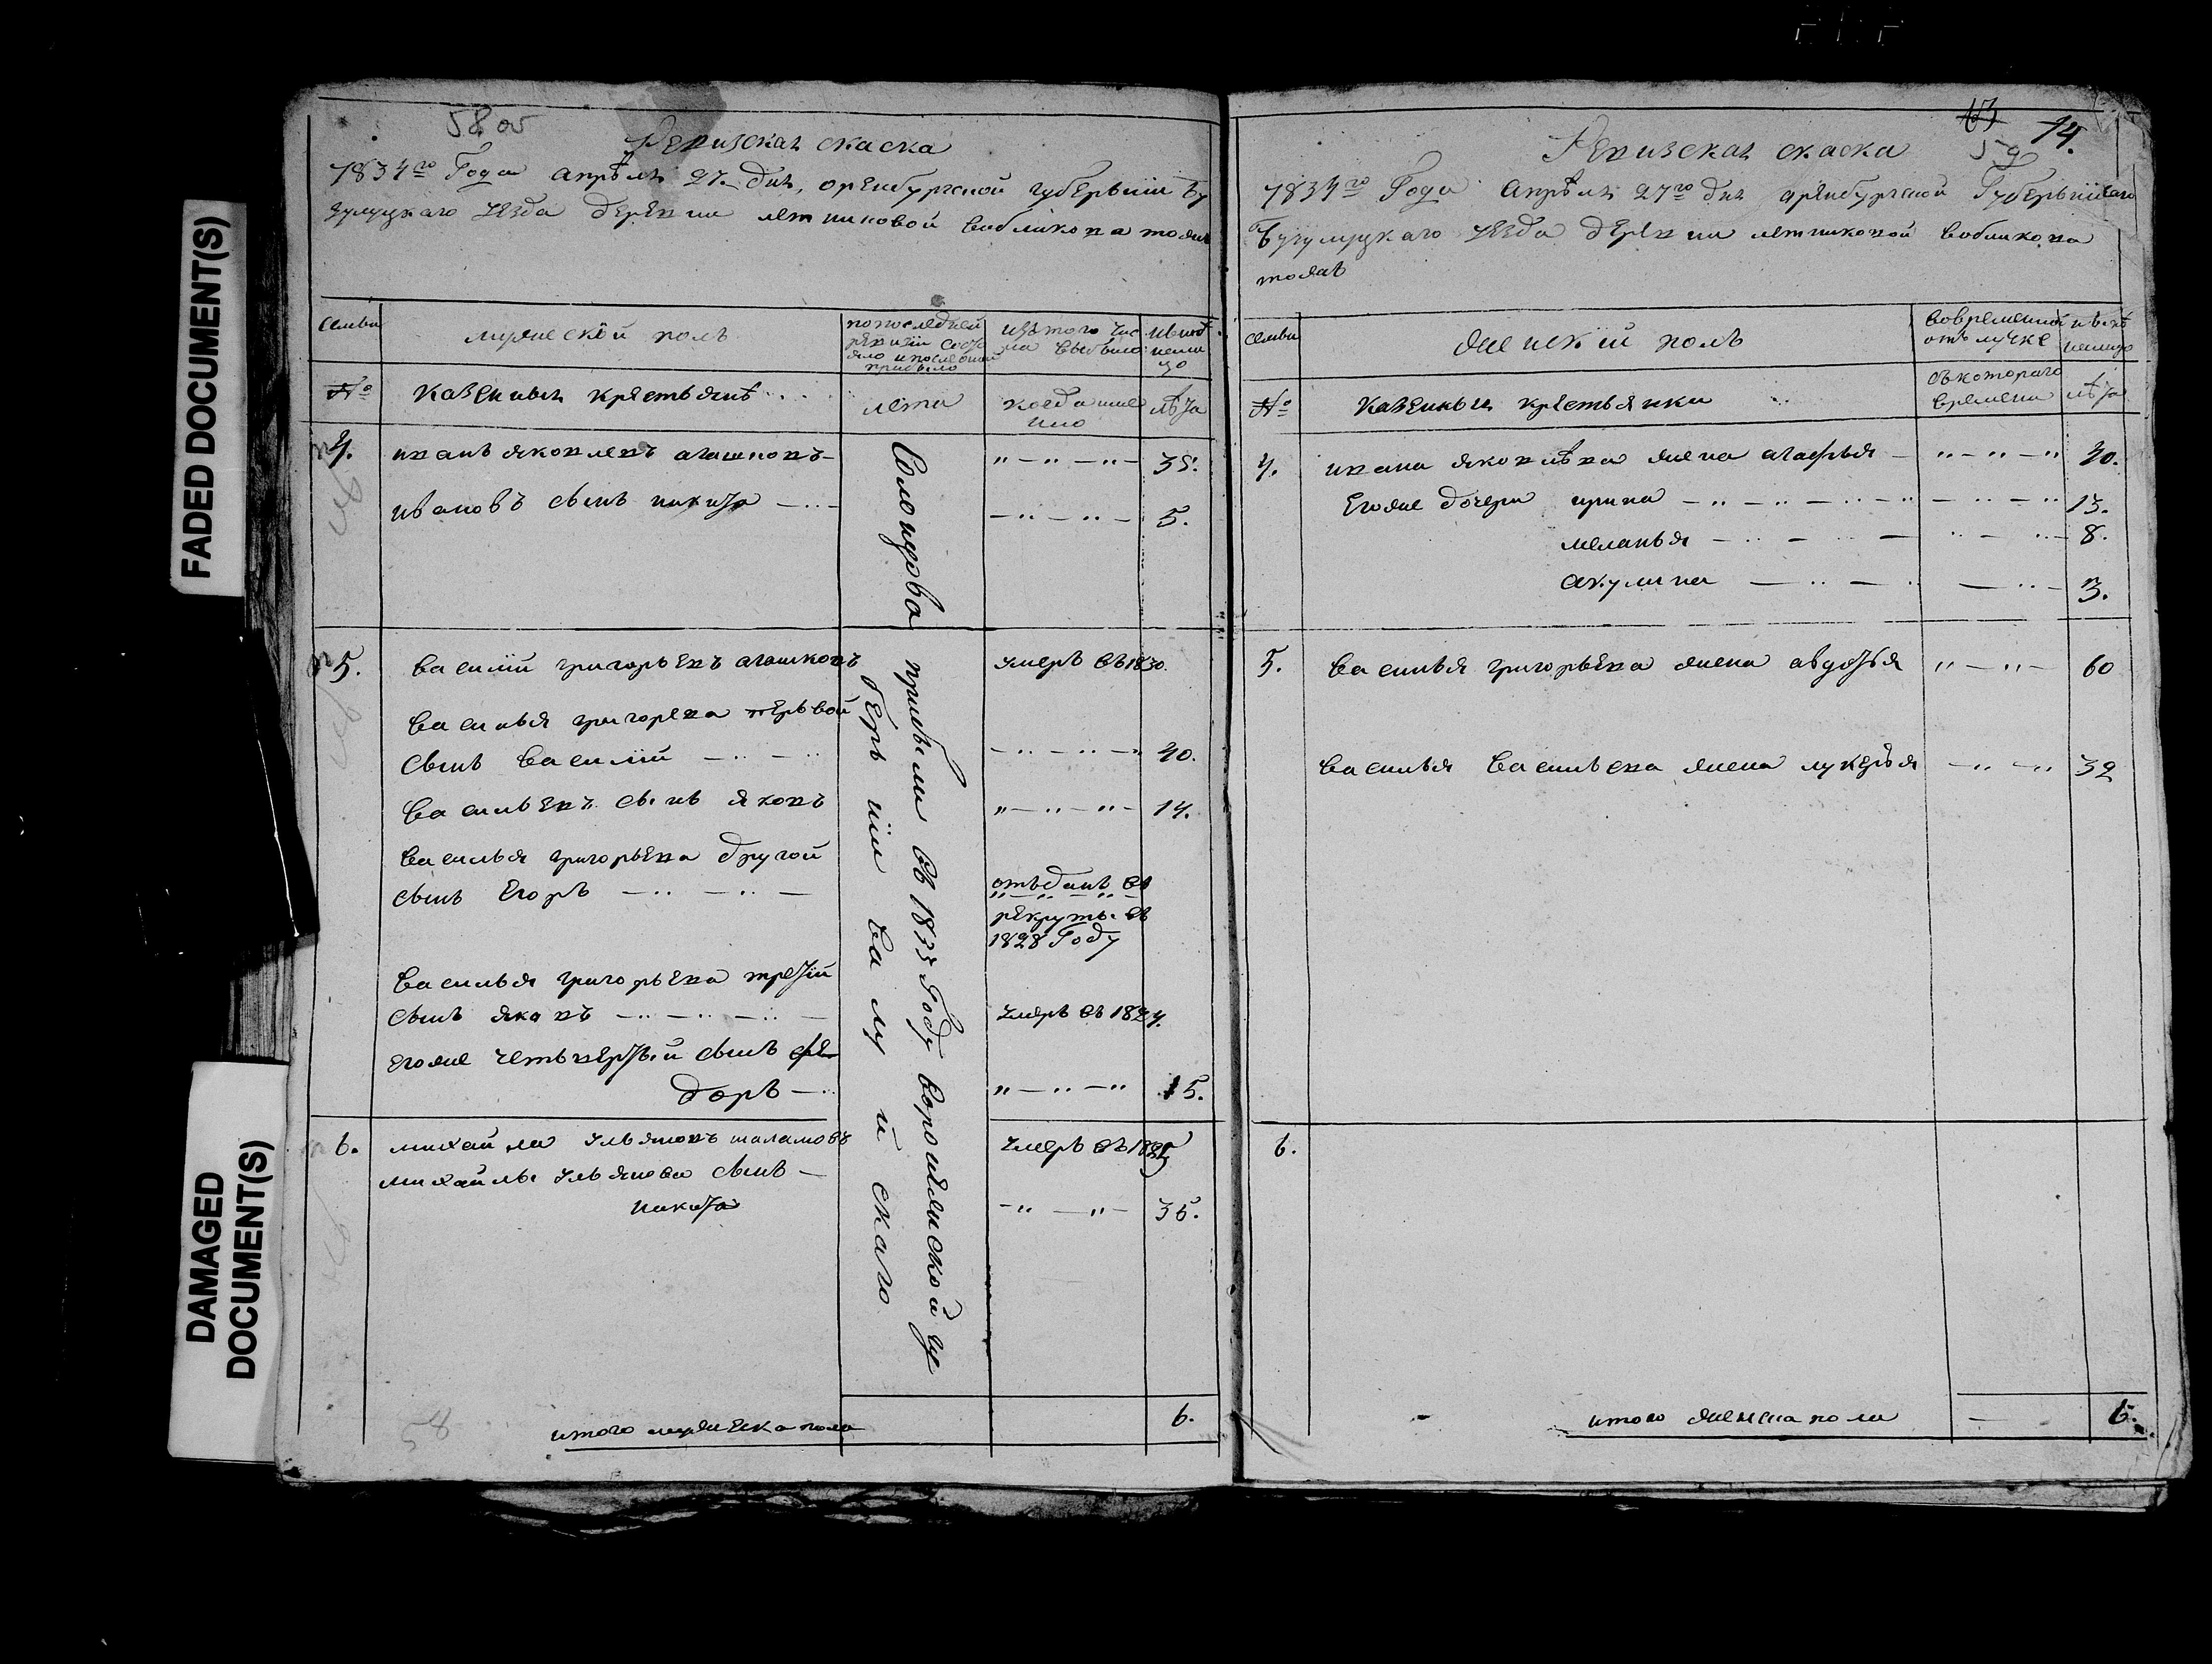 FADED DOCUMENT(S)
DAMAGED DOCUMENT(S)
58 об
Ревизская скаска
1834го Года апреля 27. дня, оренбургской губернии бу
гулуцкаго уезда деревни летниковой
Семьи
мужеский полъ
по последней ревизии состояло и после оной прибыло
изъ того числа выбыло
ныне на лицо
№
казенныя крестьянъ
лета
когда имено
лета
4.
иванъ яковлевъ агашковъ
35.
ивановъ сынъ никита
5.
5.
василий григорьевъ агашковъ
умеръ въ 1830.
василья григорева первой
сынъ василий
40.
васильевъ сынъ яковъ
14.
василья григорьева другой
сынъ Егоръ
отъданъ въ
рекруты въ
1828 Году
василья григорьева третий
сынъ яковъ
умеръ въ 1824.
егоже четьвертый сынъ фе
доръ
15.
6.
михайла ульяновъ шаламовъ
умеръ въ 1825
михайлы ульянова сынъ
никита
35.
прибыли въ 1833 Году воронежской гу
берънии ва лу й скаго
итого мужеска пола
6.
58
13
14.
59
Ревизская скаска
1834го Года апреля 27го дня оренбургской Губернии
Бугулуцкаго уезда деревни летниковой
Семьи
женский полъ
во временной отълучке
ныне на лицо
№
казенныя крестьянки
съ котораго времени
лета
4.
ивана яковлева жена агафья
40.
Егоже дочери ирина
13.
меланья
8.
акулина
3.
5.
василья григорьева жена авдотья
60
василья васильева жена лукерья
32
6.
итого женска пола
6.